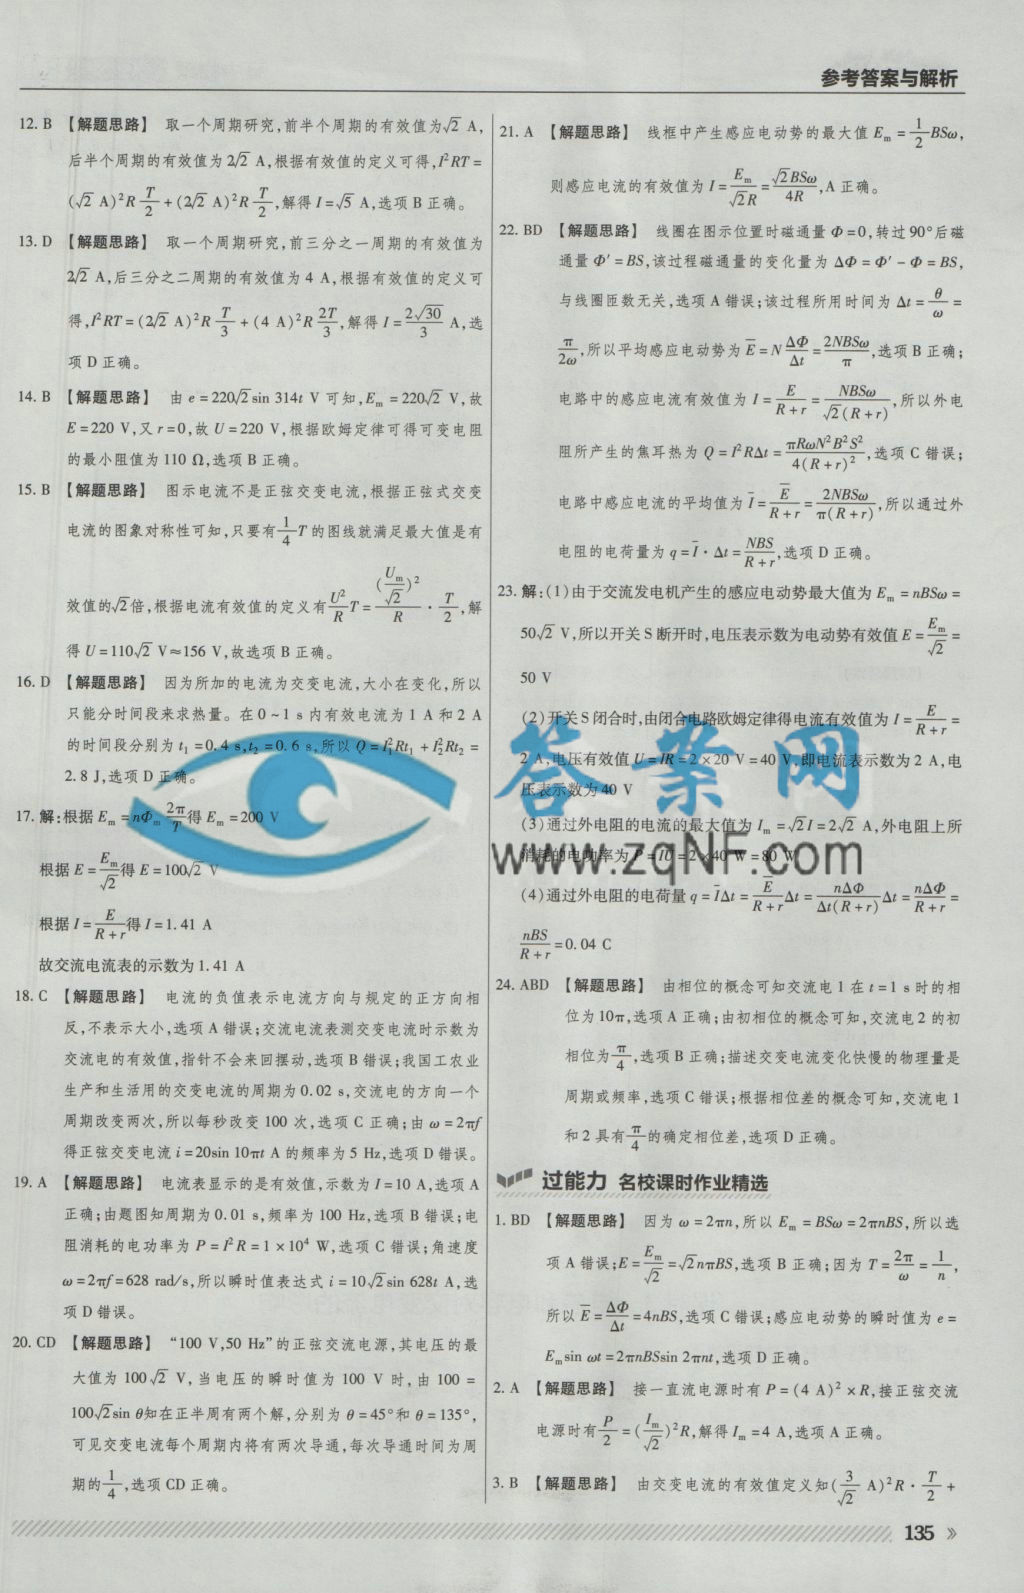 参考答案与解析
12. B 【解题思路】 取一个周期研究,前半个周期的有效值为√2 A,
后半个周期的有效值为2√2 A,根据有效值的定义可得,I²RT=
(√2 A)²R T/2+(2√2 A)²R T/2,解得I=√5 A,选项B正确。
13. D 【解题思路】 取一个周期研究,前三分之一周期的有效值为
2√2 A,后三分之二周期的有效值为4 A,根据有效值的定义可
得,I²RT=(2√2 A)²R T/3+(4 A)²R 2T/3,解得I=2√30/3 A,选
项D正确。
14. B 【解题思路】 由e=220√2sin 314t V可知,Em=220√2 V,故
E=220 V,又r=0,故U=220 V,根据欧姆定律可得可变电阻
的最小阻值为110 Ω,选项B正确。
15. B 【解题思路】 图示电流不是正弦交变电流,根据正弦式交变
电流的图象对称性可知,只要有1/4T的图线就满足最大值是有
效值的√2倍,根据电流有效值的定义有U²/R T=(Um/√2)²/R·T/2,解
得U=110√2 V≈156 V,故选项B正确。
16. D 【解题思路】 因为所加的电流为交变电流,大小在变化,所以
只能分时间段来求热量。在0~1 s内有效电流为1 A和2 A
的时间段分别为t₁=0.4 s,t₂=0.6 s,所以Q=I₁²Rt₁+I₂²Rt₂=
2.8 J,选项D正确。
17. 解:根据Em=nΦm 2π/T得Em=200 V
根据E=Em/√2得E=100√2 V
根据I=E/(R+r)得I=1.41 A
故交流电流表的示数为1.41 A
18. C 【解题思路】 电流的负值表示电流方向与规定的正方向相
反,不表示大小,选项A错误;交流电流表测交变电流时示数为
交流电的有效值,指针不会来回摆动,选项B错误;我国工农业
生产和生活用的交变电流的周期为0.02 s,交流电的方向一个
周期改变两次,所以每秒改变100次,选项C正确;由ω=2πf
得正弦交变电流i=20sin 10πt A的频率为5 Hz,选项D错误。
19. A 【解题思路】 电流表显示的是有效值,示数为I=10 A,选项A
正确;由题图知周期为0.01 s,频率为100 Hz,选项B错误;电
阻消耗的电功率为P=I²R=1×10⁴ W,选项C错误;角速度
ω=2πf=628 rad/s,所以瞬时值表达式i=10√2sin 628t A,选
项D错误。
20. CD 【解题思路】 “100 V,50 Hz”的正弦交流电源,其电压的最
大值为100√2 V,当电压的瞬时值为100 V时,由100=
100√2sin θ知在正半周有两个解,分别为θ=45°和θ=135°,
可见交变电流每个周期内将有两次导通,每次导通时间为周
期的1/4,选项CD正确。
21. A 【解题思路】 线框中产生感应电动势的最大值Em=1/2BSω,
则感应电流的有效值为I=Em/(√2R)=√2BSω/4R,A正确。
22. BD 【解题思路】 线圈在图示位置时磁通量Φ=0,转过90°后磁
通量Φ'=BS,该过程磁通量的变化量为ΔΦ=Φ'-Φ=BS,
与线圈匝数无关,选项A错误;该过程所用时间为Δt=θ/ω=
π/2ω,所以平均感应电动势为E̅=N ΔΦ/Δt=2NBSω/π,选项B正确;
电路中的感应电流有效值为I=E/(R+r)=NBSω/(√2(R+r)),所以外电
阻所产生的焦耳热为Q=I²RΔt=πRωN²B²S²/4(R+r)²,选项C错误;
电路中感应电流的平均值为I̅=E̅/(R+r)=2NBSω/π(R+r),所以通过外
电阻的电荷量为q=I̅·Δt=NBS/(R+r),选项D正确。
23. 解:(1)由于交流发电机产生的感应电动势最大值为Em=nBSω=
50√2 V,所以开关S断开时,电压表示数为电动势有效值E=Em/√2=
50 V
(2)开关S闭合时,由闭合电路欧姆定律得电流有效值为I=E/(R+r)=
2 A,电压有效值U=IR=2×20 V=40 V,即电流表示数为2 A,电
压表示数为40 V
(3)通过外电阻的电流的最大值为Im=√2I=2√2 A,外电阻上所
消耗的电功率为P=IU=2×40 W=80 W
(4)通过外电阻的电荷量q=I̅Δt=E̅/(R+r)Δt=nΔΦ/Δt(R+r)Δt=nΔΦ/(R+r)=
nBS/(R+r)=0.04 C
24. ABD 【解题思路】 由相位的概念可知交流电1在t=1 s时的相
位为10π,选项A正确;由初相位的概念可知,交流电2的初
相位为π/4,选项B正确;描述交变电流变化快慢的物理量是
周期或频率,选项C错误;根据相位差的概念可知,交流电1
和2具有π/4的确定相位差,选项D正确。
过能力 名校课时作业精选
1. BD 【解题思路】 因为ω=2πn,所以Em=BSω=2πnBS,所以选
项A错误;E=Em/√2=√2nπBS,选项B正确;因为T=2π/ω=1/n,
所以E̅=ΔΦ/Δt=4nBS,选项C错误;感应电动势的瞬时值为e=
Emsin ωt=2πnBSsin 2πnt,选项D正确。
2. A 【解题思路】 接一直流电源时有P=(4 A)²×R,接正弦交流
电源时有P/2=(Im/√2)²R,解得Im=4 A,选项A正确。
3. B 【解题思路】 由交变电流的有效值定义知(3/√2 A)²R·T/2+
答案网
www.zqNF.com
135